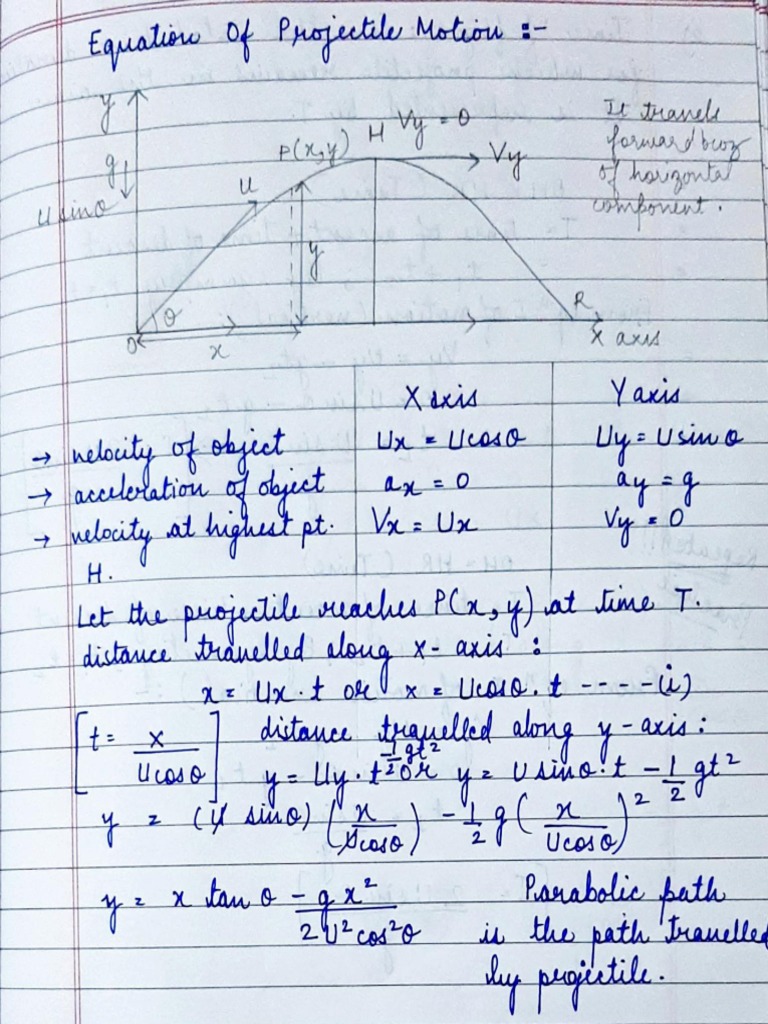 Equation Of Projectile Motion :-
y
g
Usinθ
U
P(x,y)
H Vy = 0
Vy
It travels
forward bcoz
of horizontal
component.
y
θ
O
x
R
X axis
X axis Y axis
→ velocity of object Ux = Ucosθ Uy = Usinθ
→ acceleration of object ax = 0 ay = g
→ velocity at highest pt. Vx = Ux Vy = 0
H.
Let the projectile reaches P(x,y) at time T.
distance travelled along x-axis :
x = Ux · t or x = Ucosθ. t ---- (i)
[t = x/Ucosθ] distance travelled along y-axis :
y = Uy · t - 1/2 gt² or y = Usinθ·t - 1/2 gt²
y = (U sinθ) (x/Ucosθ) - 1/2 g (x/Ucosθ)²
y = x tanθ - gx²/2U²cos²θ Parabolic path
is the path travelled
by projectile.